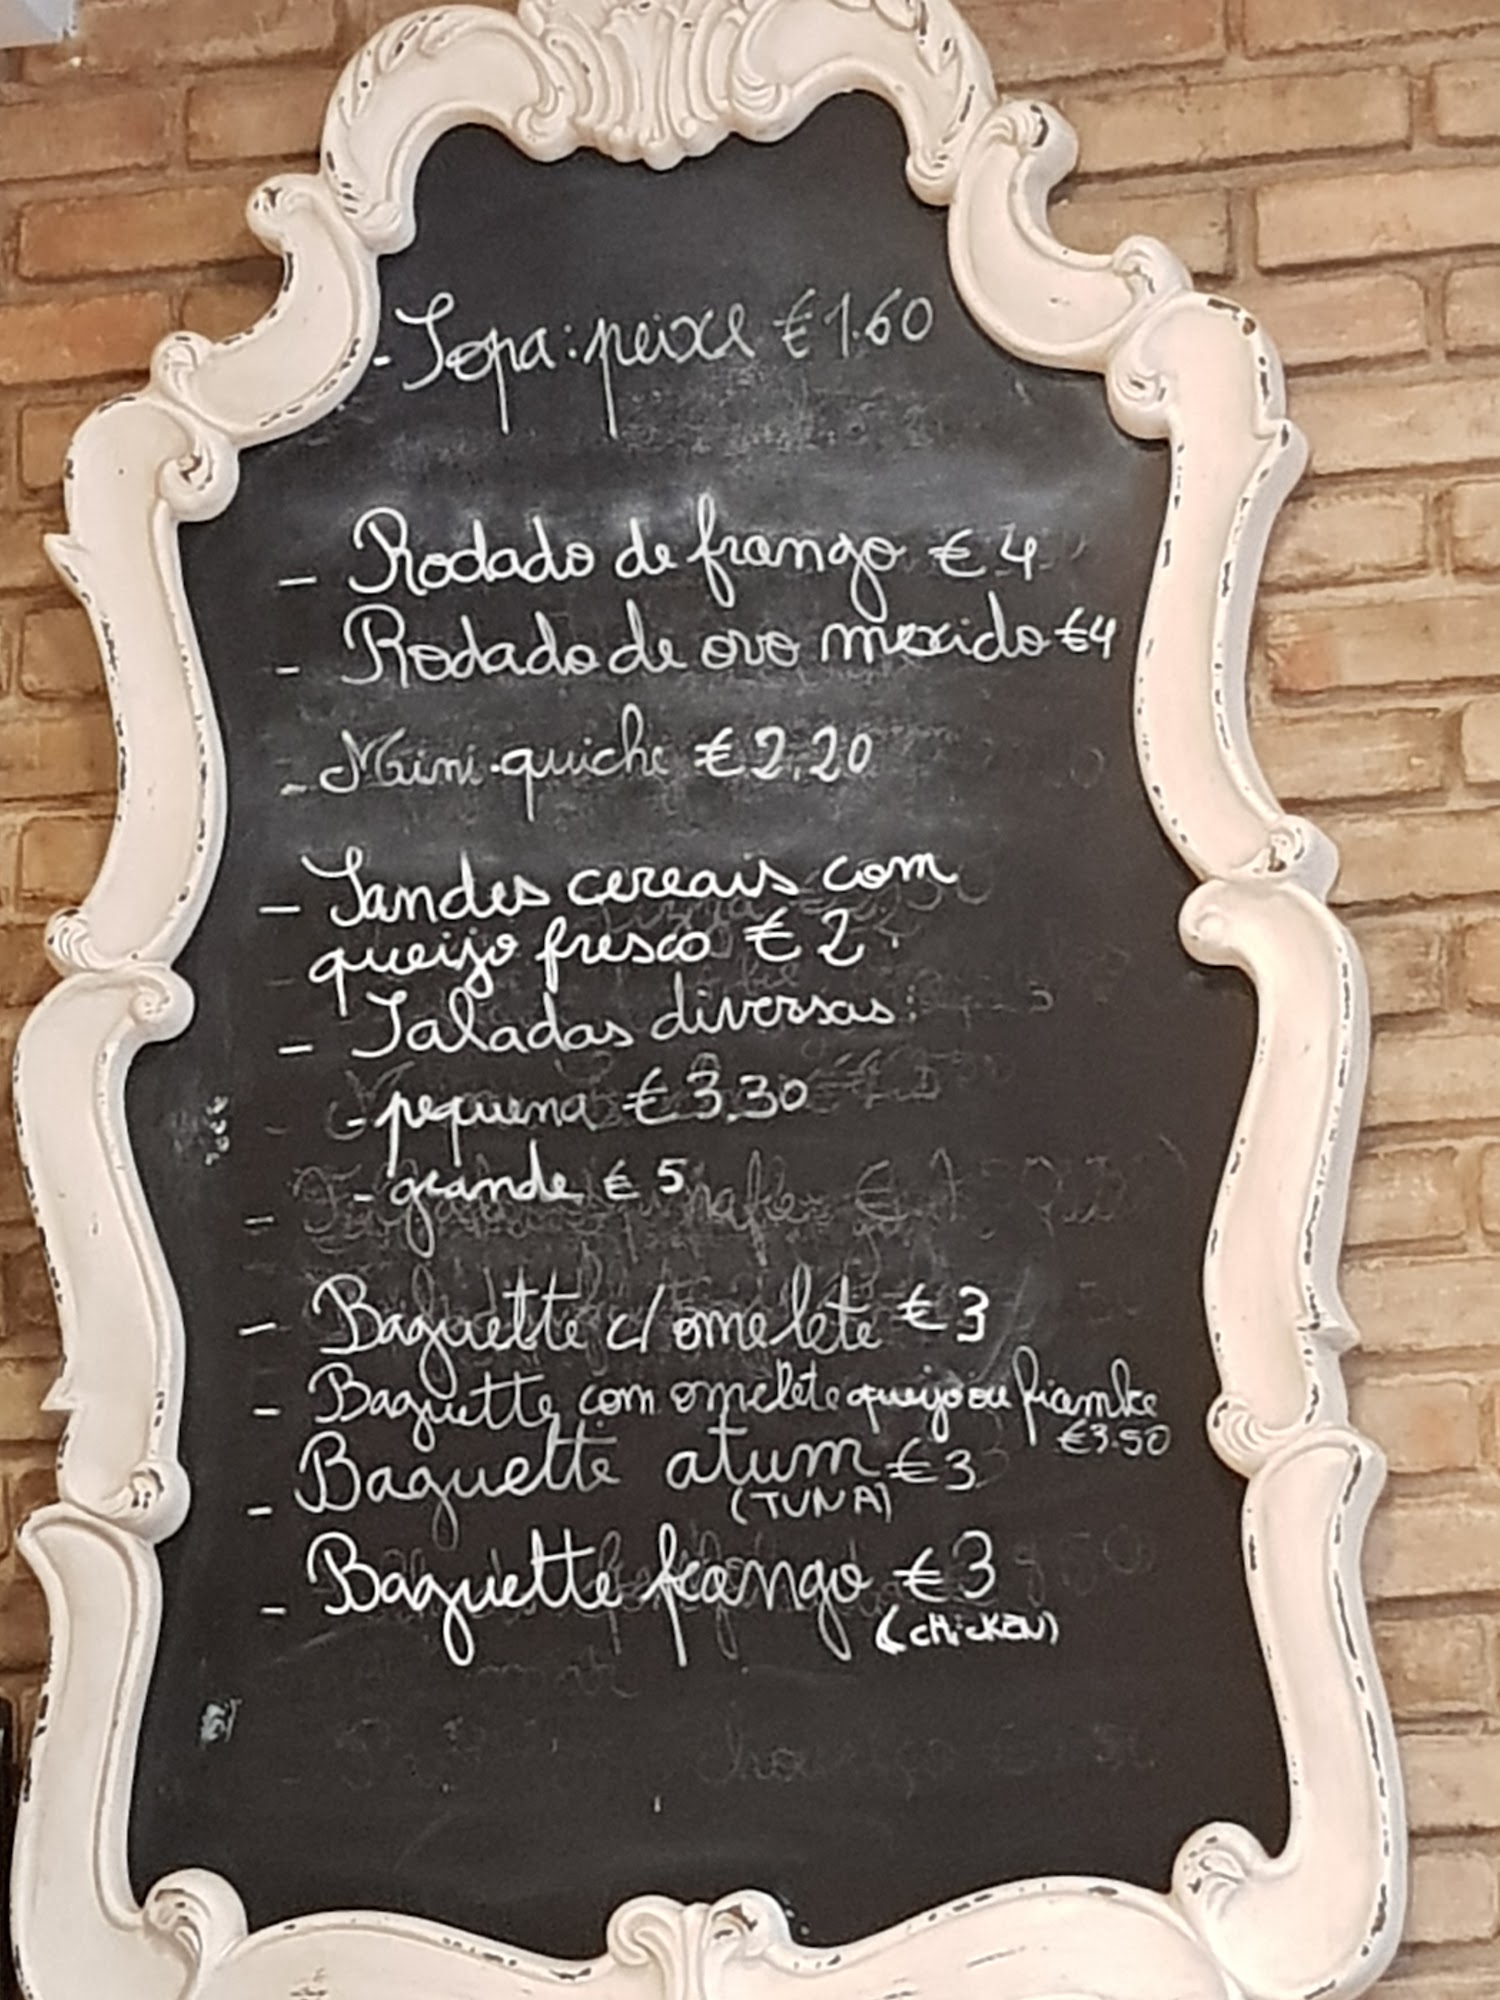 - Sopa: peixe € 1.60
- Rodado de frango € 4
- Rodado de ovo mexido €4
- Mini-quiche € 2.20
- Sandes cereais com
queijo fresco € 2.
- Saladas diversas:
- pequena € 3.30
- grande € 5
- Baguette c/ omelete € 3
- Baguette com omelete queijo ou fiambre
€3.50
- Baguette atum € 3
(TUNA)
- Baguette frango € 3
(CHICKEN)